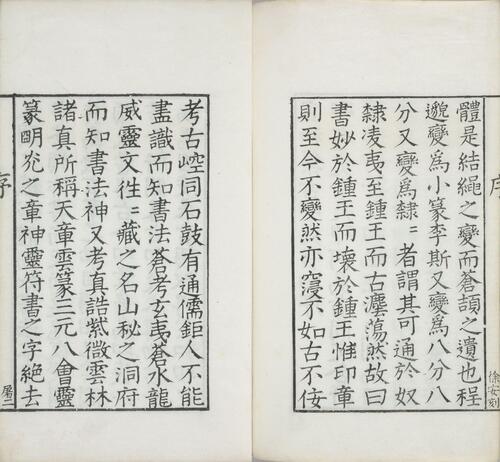 體是結繩之變而蒼頡之遺也程
邈變為小篆李斯又變為八分八
分又變為隸〻者謂其可通於奴
隸凌夷至鍾王而古灋蕩然故曰
書妙於鍾王而壞於鍾王惟印章
則至今不變然亦寖不如古不佞
序
徐安刻
考古崆同石鼓有通儒鉅人不能
盡識而知書法蒼考玄夷蒼水龍
威靈文徃〻藏之名山秘之洞府
而知書法神又考真誥紫微雲林
諸真所稱天章雲篆三元八會靈
篆朙光之章神靈符書之字絕去
序
屠二